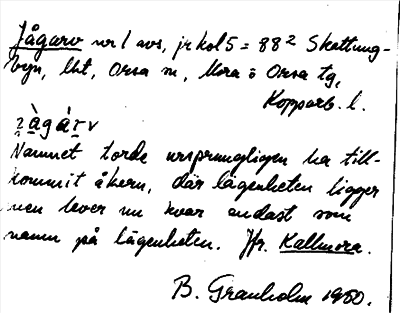 Jågarv nr 1 avs, jr kol 5 = 88² Skattung-
byn, lht, Orsa sn, Mora o Orsa tg,
Kopparb. l.
ɀàgárv
Namnet torde ursprungligen ha till-
kommit åkern, där lägenheten ligger
men lever nu kvar endast som
namn på lägenheten. Jfr. Kallmora.
B. Granholm 1950.